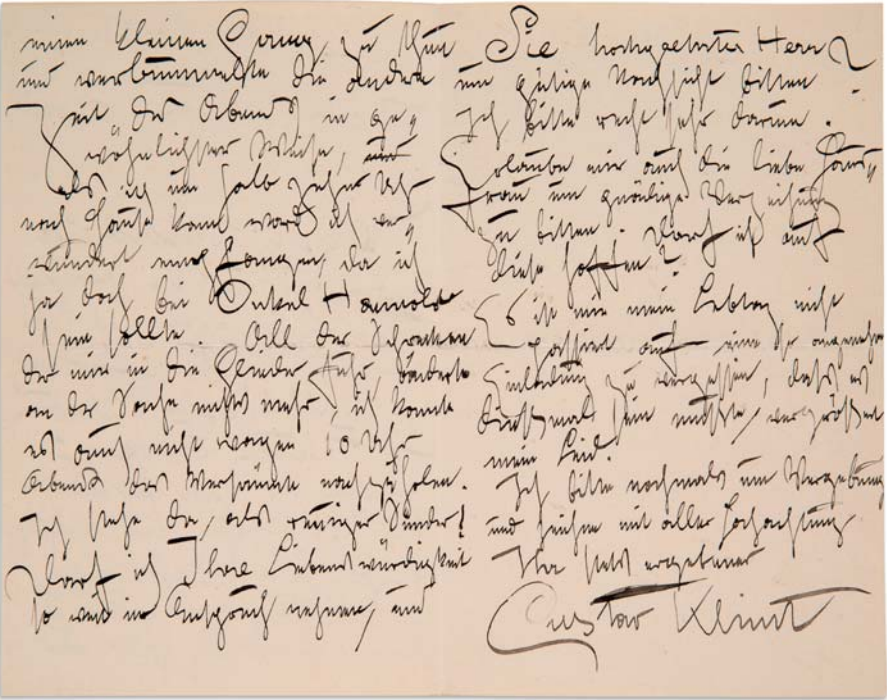 einen kleinen Gang zu thun
und verbummelte die andere
Zeit des Abends in ge„
wöhnlichster Weise, und
als ich um halb zehn Uhr
nach Hause kam ward ich ver„
wundert empfangen, da ich
ja doch bei Onkel Hanold
sein sollte. All der Schrecken
der mir in die Glieder fuhr, änderte
an der Sache nichts mehr, ich konnte
es auch nicht wagen 10 Uhr
Abends das Versäumte nachzuholen.
Ich stehe da, als reuiger Sünder!
Darf ich Ihre Liebenswürdigkeit
so weit in Anspruch nehmen, und
Sie hochgeehrter Herr
um gütige Nachsicht bitten?
Ich bitte recht sehr darum.
Erlaube mir auch die liebe Haus„
frau um gnädige Verzeihung
zu bitten. Darf ich auf
diese hoffen?
Es ist mir mein Lebtag nicht
passiert auf eine so angenehme
Einladung zu vergessen, dass es
diessmal sein musste, vergrößert
mein Leid.
Ich bitte nochmals um Vergebung
und zeichne mit aller Hochachtung
Ihr stets ergebener
Gustav Klimt